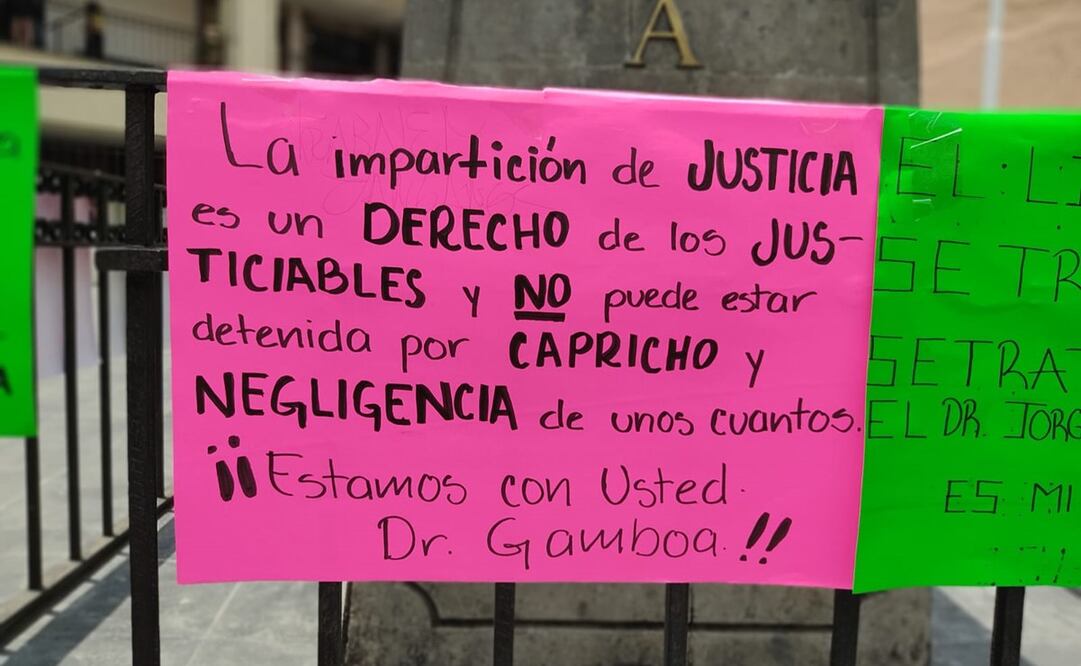 A
La impartición de JUSTICIA
es un DERECHO de los JUS-
TICIABLES y NO puede estar
detenida por CAPRICHO y
NEGLIGENCIA de unos cuantos.
¡¡Estamos con Usted.
Dr. Gamboa.!!
EL LI
SE TR
SE TRAT
EL DR. JORG
ES MI
A